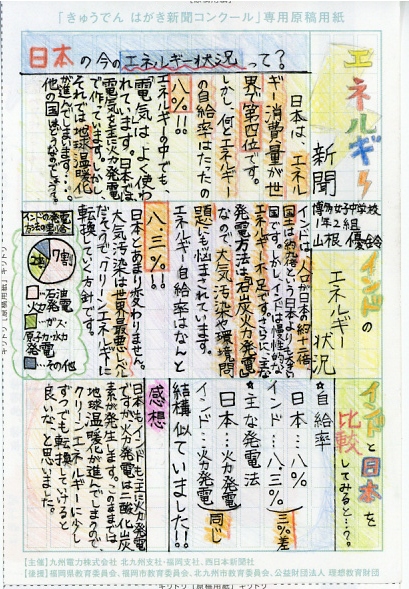 「きゅうでん はがき新聞コンクール」専用原稿用紙
エネルギー
新聞
博多女子中学校
1年2組
山根 優鈴
日本の今のエネルギー状況って?
日本は、エネル
ギー消費量が世
界で第四位です。
しかし、何とエネルギー
の自給率はたったの
八%!!
エネルギーの中でも、
電気はよく使わ
れています。日本では
電気を主に火力発電
で作っています。しかし、
それでは地球温暖化
が進んでしまいます…。
他の国はどうなのでしょう。
インドの
エネルギー
状況
インドは、人口が日本の約十一倍
国土は約九倍という日本よりも大きい
国です。しかし、インドは慢性的な
エネルギー不足です。さらに、主な
発電方法は石炭火力発電
なので、大気汚染や環境問
題にも悩まされています。
エネルギー自給率はなんと
八.三%!!
日本とあまり変わりません。
大気汚染は世界最悪レベル
だそうで、クリーンエネルギーに
転換していく方針です。
インドの発電
方法の割合
7割
2割
…石炭
火力発電
…ガス・火力
原子力
発電
…その他
インドと日本を
比較してみると…?
☆自給率
日本…八%
インド…八.三%
三%差
☆主な発電法
日本…火力発電
インド…火力発電
同じ
結構似ていました!!
感想
日本もインドも主に火力発電
ですが、火力発電は二酸化炭
素が発生します。このままでは
地球温暖化が進んでしまうので、
クリーンエネルギーに少し
ずつでも転換していけると
良いな、と思いました。
【主催】九州電力株式会社 北九州支社・福岡支社、西日本新聞社
【後援】福岡県教育委員会、福岡市教育委員会、北九州市教育委員会、公益財団法人 理想教育財団
キリトリ【原稿用紙】キリトリ